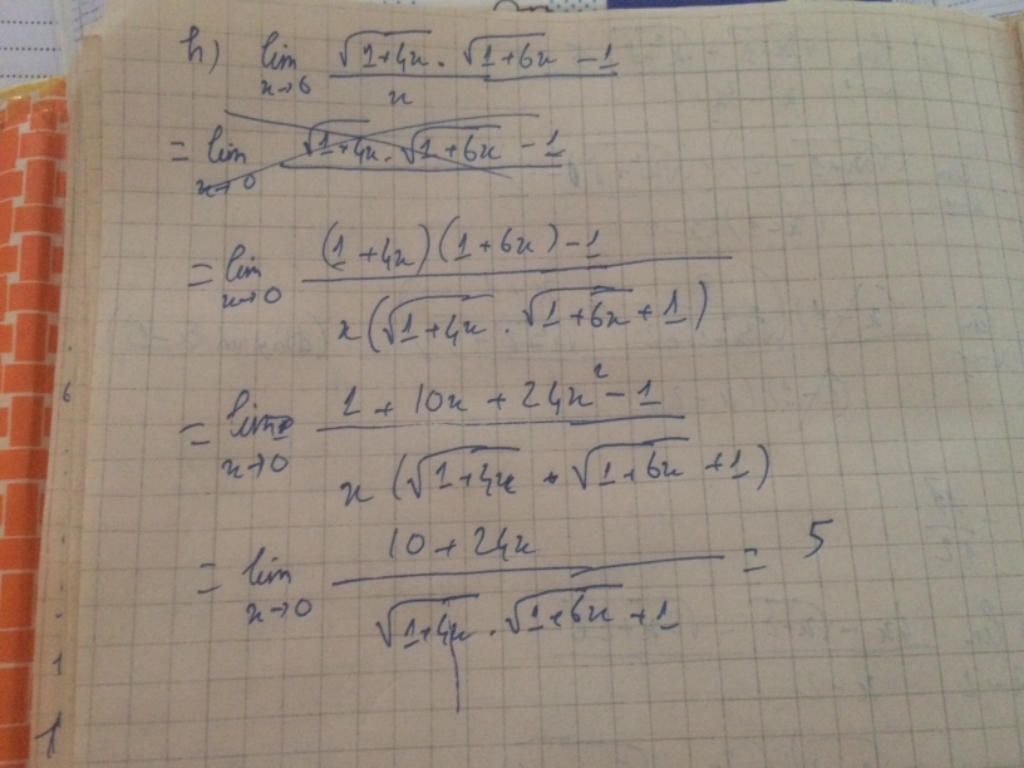 h) lim x→6 √1+4x . √1+6x - 1 / x
= lim x→0 √1+4x . √1+6x - 1
= lim x→0 (1+4x)(1+6x) - 1 / x(√1+4x . √1+6x + 1)
= lim x→0 1 + 10x + 24x² - 1 / x(√1+4x . √1+6x + 1)
= lim x→0 10 + 24x / √1+4x . √1+6x + 1 = 5